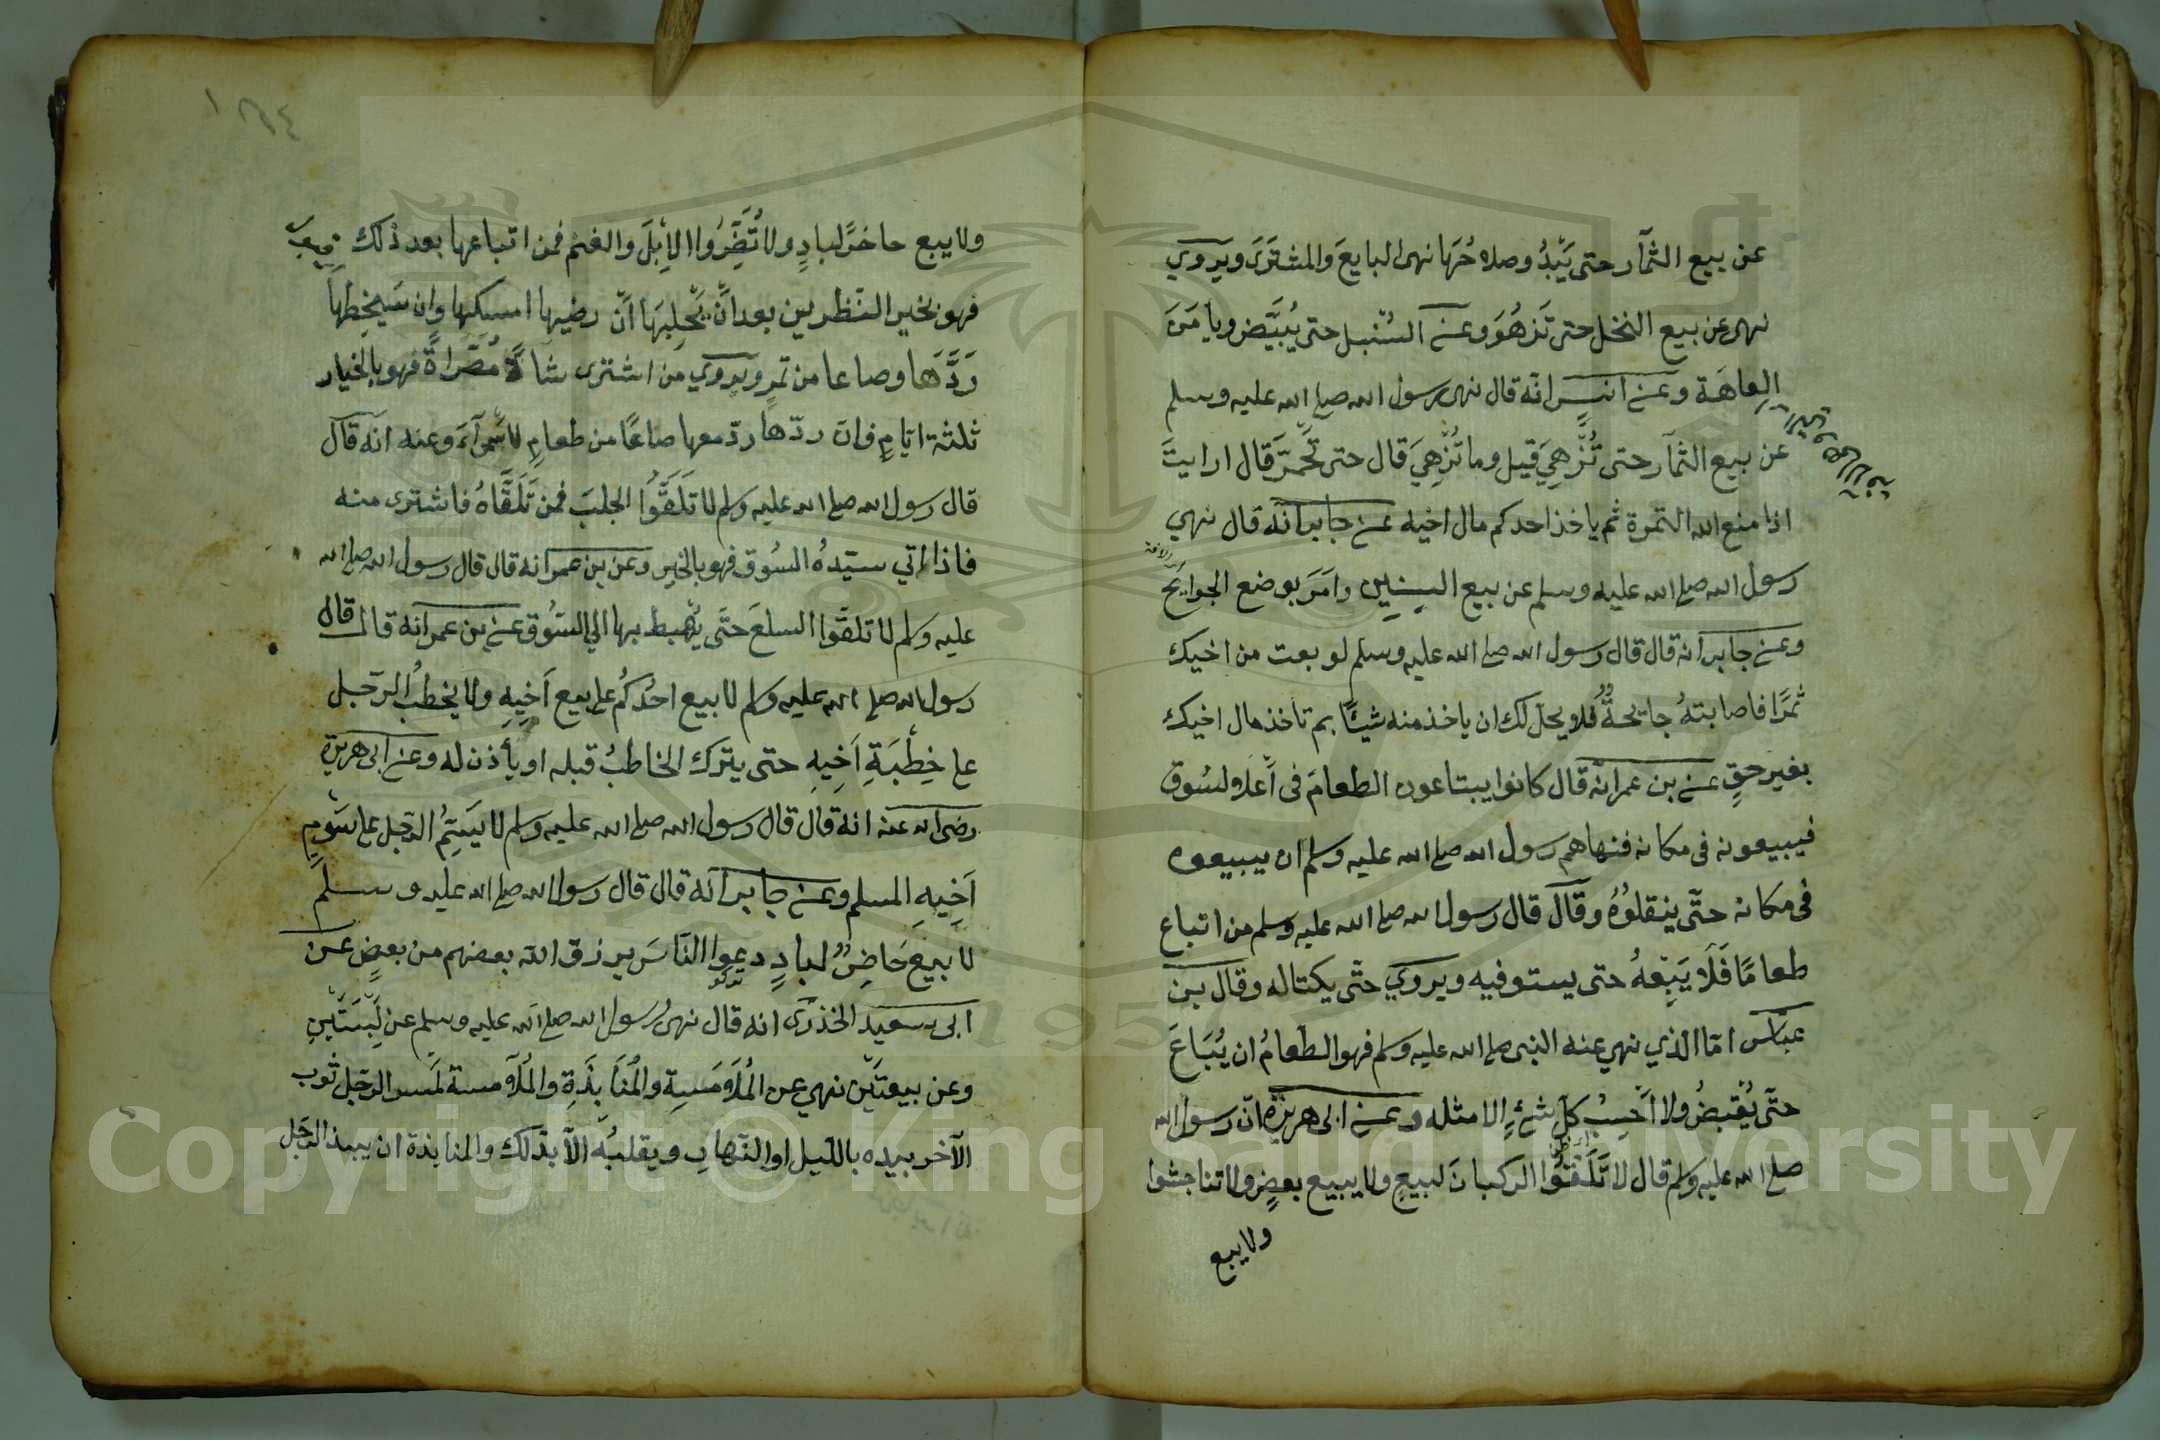 عن بيع الثمار حتى يَبْدُو صلاحُهَا نهى البايعَ والمشترَى ويروي
نهى عن بيع النخل حتى تَزهُوَ وعن السُنْبل حتى يُبيَّض ويأمَنَ
العاهَة وعن انسٍ انّه قال نهى رسول الله صلى الله عليه وسلم
عن بيع الثمار حتى تُزْهِيَ قيل وما تُزْهِيَ قال حتى تَحْمرَّ قال ارايتَ
اذا منع الله الثمرة ثم ياخذ احدكم مال اخيه عن جابر انّه قال نهي
رسول الله صلى الله عليه وسلم عن بيع السِنِين وامَرَ بوضع الجوايَح
وعن جابر انه قال قال رسول الله صلى الله عليه وسلم لو بعت من اخيك
ثمرًا فاصابتهُ جايحةٌ فلا يحل لك ان ياخذ منه شيئًا بم تاخذ مال اخيك
بغير حقٍ عن بن عمر انّه قال كانوا يبتاعون الطعامَ فى أعلاو لسُوق
فيبيعونه فى مكانه فنهاهم رسول الله صلى الله عليه وسلم ان يبيعوه
فى مكانه حتّى ينقلوُهُ وقال قال رسول الله صلى الله عليه وسلم من ابتاع
طعامًا فَلَا يَبِعْهُ حتى يستوفيه ويروي حتّى يكتاله وقال بن
عبّاس امّا الذي نهي عنه النبى صلى الله عليه وسلم فهو الطعامُ ان يُبَاعَ
حتّى يُقبضُ ولا أحْسِبُ كلّ شئٍ الا مثله وعن ابى هريرة انّ رسول الله
صلى الله عليه وسلم قال لا تَلَقَّوُا الركبانَ لبيعٍ ولا يبيع بعضٍ ولا تناجشوا
ولا يبع
ولا يبع حاضرً لبادٍ ولا تُصَرُّوا الإبلَ والغنم فمن ابتاعها بعد ذلك
فهو بخير النّظرين بعد انْ يَحْلِبَهَا انّ رضيها امسكها وان سَخِطها
رَدَّهَا وصاعا من تمرٍ ويروي من اشترى شاةً مُصَرّاةً فهو بالخيار
ثلثة ايّامٍ فان ردّها ردّ معها صاعًا من طعامٍ لا سَمرآءَ وعنه انه قال
قال رسول الله صلى الله عليه وسلم لا تَلَقَّوُا الجلبَ فمن تَلَقَّاهُ فاشترى منه
فاذا اتي سيّدهُ السُوق فهو بالخيرِ وعن بن عمر انه قال قال رسول الله صلى الله
عليه وسلم لا تلقّوا السلعَ حتّى يُهْبط بها الي السّوُق عن بن عمر انه قال قال
رسول الله صلى الله عليه وسلم لا بيع احدُكمُ على بيع أخِيِهِ ولا يخطبُ الرّجل
على خِطْبَةِ أخِيهِ حتى يترك الخاطبُ قبله او يأذن له وعن ابى هريرة
رضى الله عنه انه قال قال رسول الله صلى الله عليه وسلم لا يَستِمُ الرّجل على سَوْمِ
أخِيهِ المسلم وعن جابر انّه قال قال رسول الله صلى الله عليه وسلم
لا بيع حَاضِرٌ لبادٍ دعوا النّاسَ يرزق الله بعضهم من بعضٍ عن
ابى سعيد الخذرى انه قال نهىُ رسول الله صلى الله عليه وسلم عن لِبْسَتَيْنِ
وعن بيعتَيْن نهي عن المُلَامَسِة والمُنَابَذَةِ والمُلَامسة لَمس الرجل ثوب
الآخر بيده بالليل او النّهار ويقلبُه الّا بذلك والمنابذة ان يبذ الرّجل
Copyright © King Saud University
1957